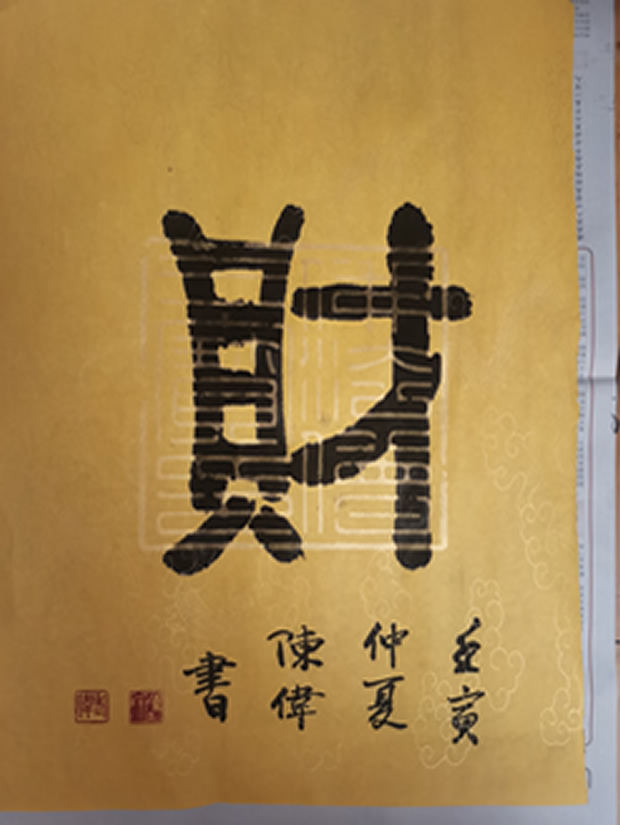 財
壬寅
仲夏
陳偉
書